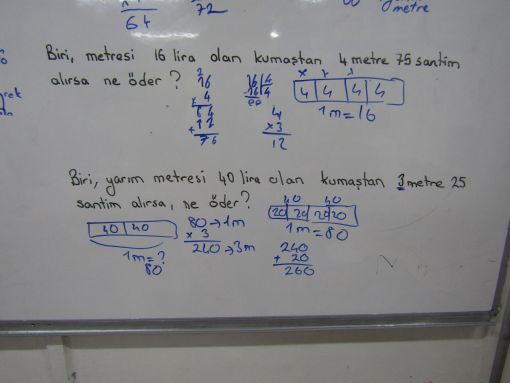 64
72
metre
Biri, metresi 16 lira olan kumaştan 4 metre 75 santim
alırsa ne öder?
2
16
x 4
64
+12
76
16 4
16 4
00
4
x3
12
4 4 4 4
1m=16
Biri, yarım metresi 40 lira olan kumaştan 3 metre 25
santim alırsa, ne öder?
40 40
1m=?
80
80→1m
x 3
240→3m
40 40
20 20 20 20
1m=80
240
+ 20
260